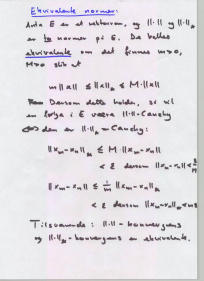 Ekvivalente normer:
Anta E er et vektorrom, og ||·|| og ||·||*
er to normer på E. De kalles
ekvivalente om det finnes m>0,
M>0 slik at
m||x|| ≤ ||x||* ≤ M·||x||
Dersom dette holder, så vil
en følge i E være ||·||-Cauchy
⇔ den er ||·||*-Cauchy:
||xm-xn||* ≤ M·||xm-xn||
< ε dersom ||xm-xn|| < ε/M
||xm-xn|| ≤ 1/m ||xm-xn||*
< ε dersom ||xm-xn||* < mε
Tilsvarende: ||·||-konvergens
og ||·||*-konvergens er ekvivalente.